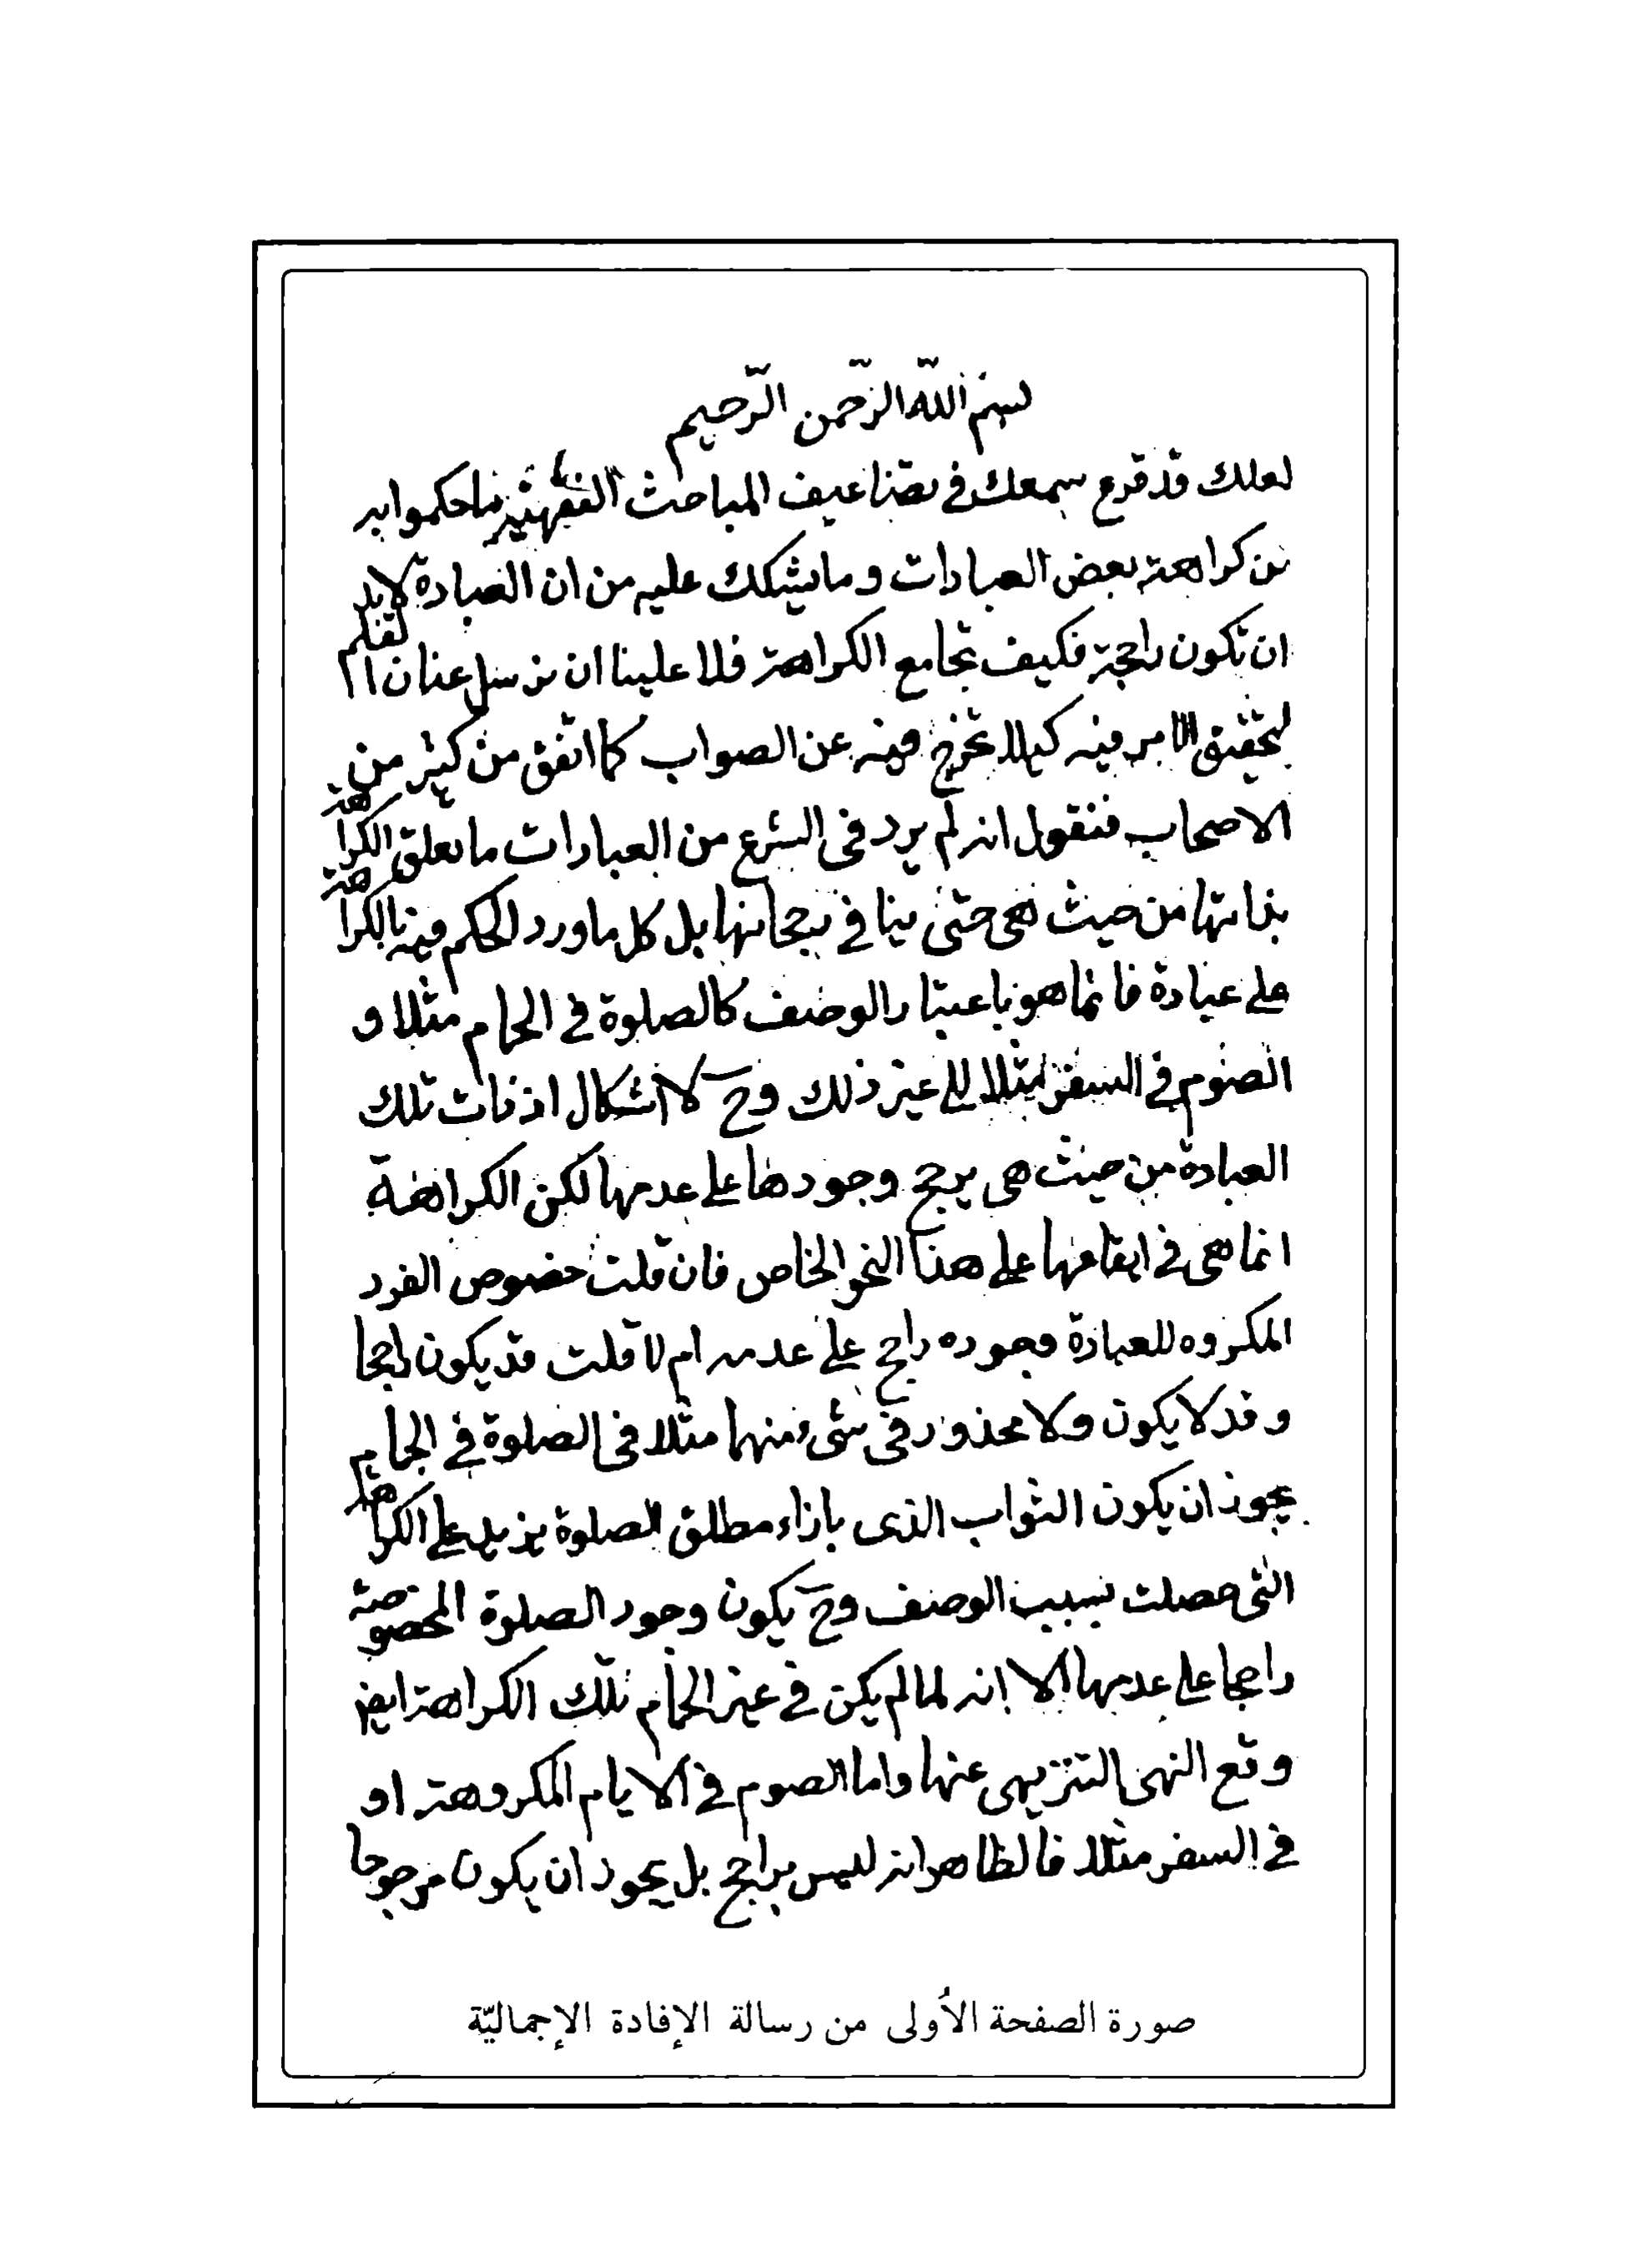 بسم الله الرحمن الرحيم
لعلك قد قرع سمعك في تضاعيف المباحث الفقهية ما حكموا به
من كراهة بعض العبادات وما يشكك عليه من ان العبادة لابد
ان تكون راجحة فكيف تجامع الكراهة فلا علينا ان نرسل عنان القلم
لتحقيق الامر فيه كيلا تخرج فيه عن الصواب كما اتفق من كثير من
الاصحاب فنقول انه لم يرد في الشرع من العبادات ما تعلق الكراهة
بذاتها من حيث هي حتى ينافي رجحانها بل كل ما ورد الحكم فيه بالكراهة
على عبادة فانما هو باعتبار الوصف كالصلوة في الحمام مثلا و
الصوم في السفر مثلا الى غير ذلك وح لا اشكال اذ ذات تلك
العبادة من حيث هي يرجح وجودها على عدمها لكن الكراهة
انما هي في ايقاعها على هذا النحو الخاص فان قلت خصوص الفرد
المكروه للعبادة وجوده راجح على عدمه ام لا قلت قد يكون راجحا
و قد لا يكون ولا محذور في شيء منهما مثلا في الصلوة في الحمام
يجوز ان يكون الثواب الذى بازاء مطلق الصلوة يزيد على الكراهة
التى حصلت بسبب الوصف وح يكون وجود الصلوة المخصوصة
راجحا على عدمها الا انه لما لم يكن في غير الحمام تلك الكراهة ايض
وقع النهى التنزيهى عنها واما الصوم في الايام المكروهة او
في السفر مثلا فالظاهر انه ليس براجح بل يجوز ان يكون مرجوحا
صورة الصفحة الأولى من رسالة الإفادة الإجماليّة